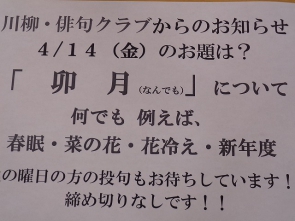 川柳・俳句クラブからのお知らせ
4/14（金）のお題は？
「　卯　月（なんでも）」について
何でも 例えば、
春眠・菜の花・花冷え・新年度
の曜日の方の投句もお待ちしています！
締め切りなしです！！